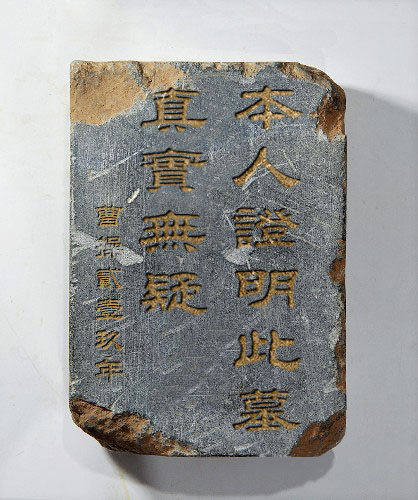 本人證明此墓
真實無疑
曹操貳壹玖年